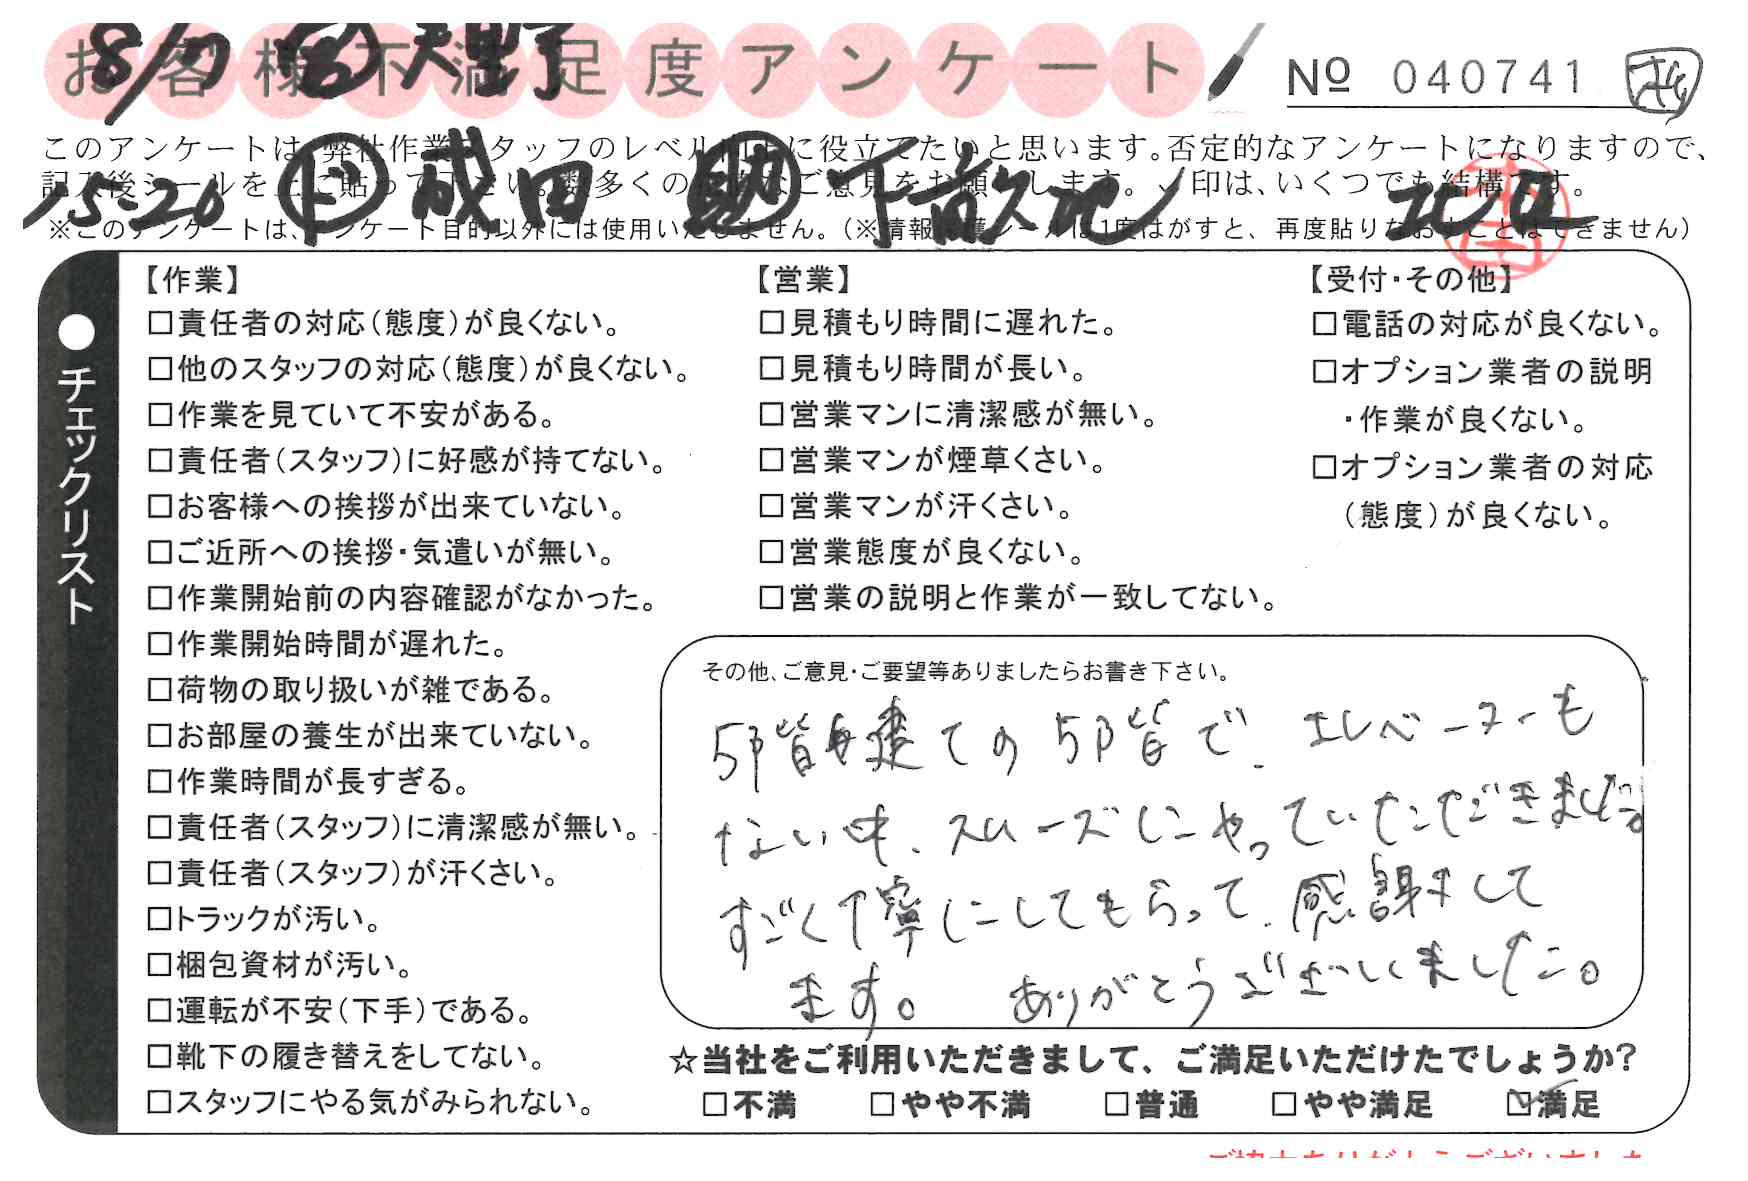 お客様不満足度アンケート
8/7
天野
Nº 040741
このアンケートは、弊社作業スタッフのレベル向上に役立てたいと思います。否定的なアンケートになりますので、
記入後シールを上に貼って下さい。数多くの否定的なご意見をお願いします。✓印は、いくつでも結構です。
15:20 成田 下高久地
※このアンケートは、アンケート目的以外には使用いたしません。(※情報保護シールは1度はがすと、再度貼りなおすことはできません)
チェックリスト
【作業】
□責任者の対応(態度)が良くない。
□他のスタッフの対応(態度)が良くない。
□作業を見ていて不安がある。
□責任者(スタッフ)に好感が持てない。
□お客様への挨拶が出来ていない。
□ご近所への挨拶・気遣いが無い。
□作業開始前の内容確認がなかった。
□作業開始時間が遅れた。
□荷物の取り扱いが雑である。
□お部屋の養生が出来ていない。
□作業時間が長すぎる。
□責任者(スタッフ)に清潔感が無い。
□責任者(スタッフ)が汗くさい。
□トラックが汚い。
□梱包資材が汚い。
□運転が不安(下手)である。
□靴下の履き替えをしてない。
□スタッフにやる気がみられない。
【営業】
□見積もり時間に遅れた。
□見積もり時間が長い。
□営業マンに清潔感が無い。
□営業マンが煙草くさい。
□営業マンが汗くさい。
□営業態度が良くない。
□営業の説明と作業が一致してない。
【受付・その他】
□電話の対応が良くない。
□オプション業者の説明
・作業が良くない。
□オプション業者の対応
(態度)が良くない。
その他、ご意見・ご要望等ありましたらお書き下さい。
5階建ての5階で、エレベーターも
ない中、スムーズにやっていただきました。
すごく丁寧にしてもらって、感謝して
ます。 ありがとうございました。
☆当社をご利用いただきまして、ご満足いただけたでしょうか?
□不満 □やや不満 □普通 □やや満足 ☑満足
ご協力ありがとうございました